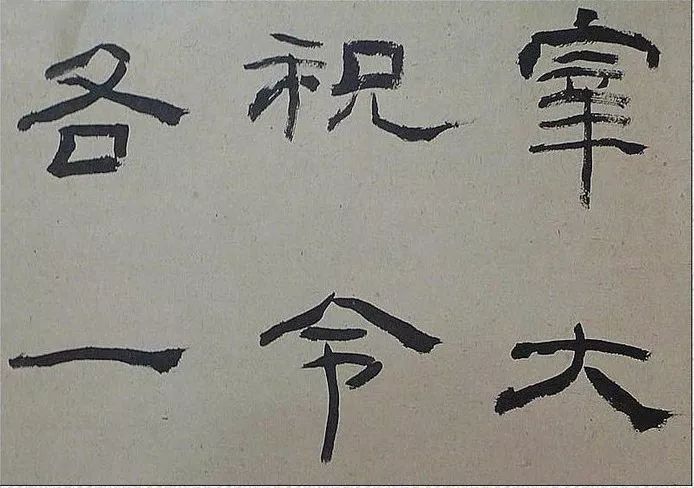 宰大
祝令
各一